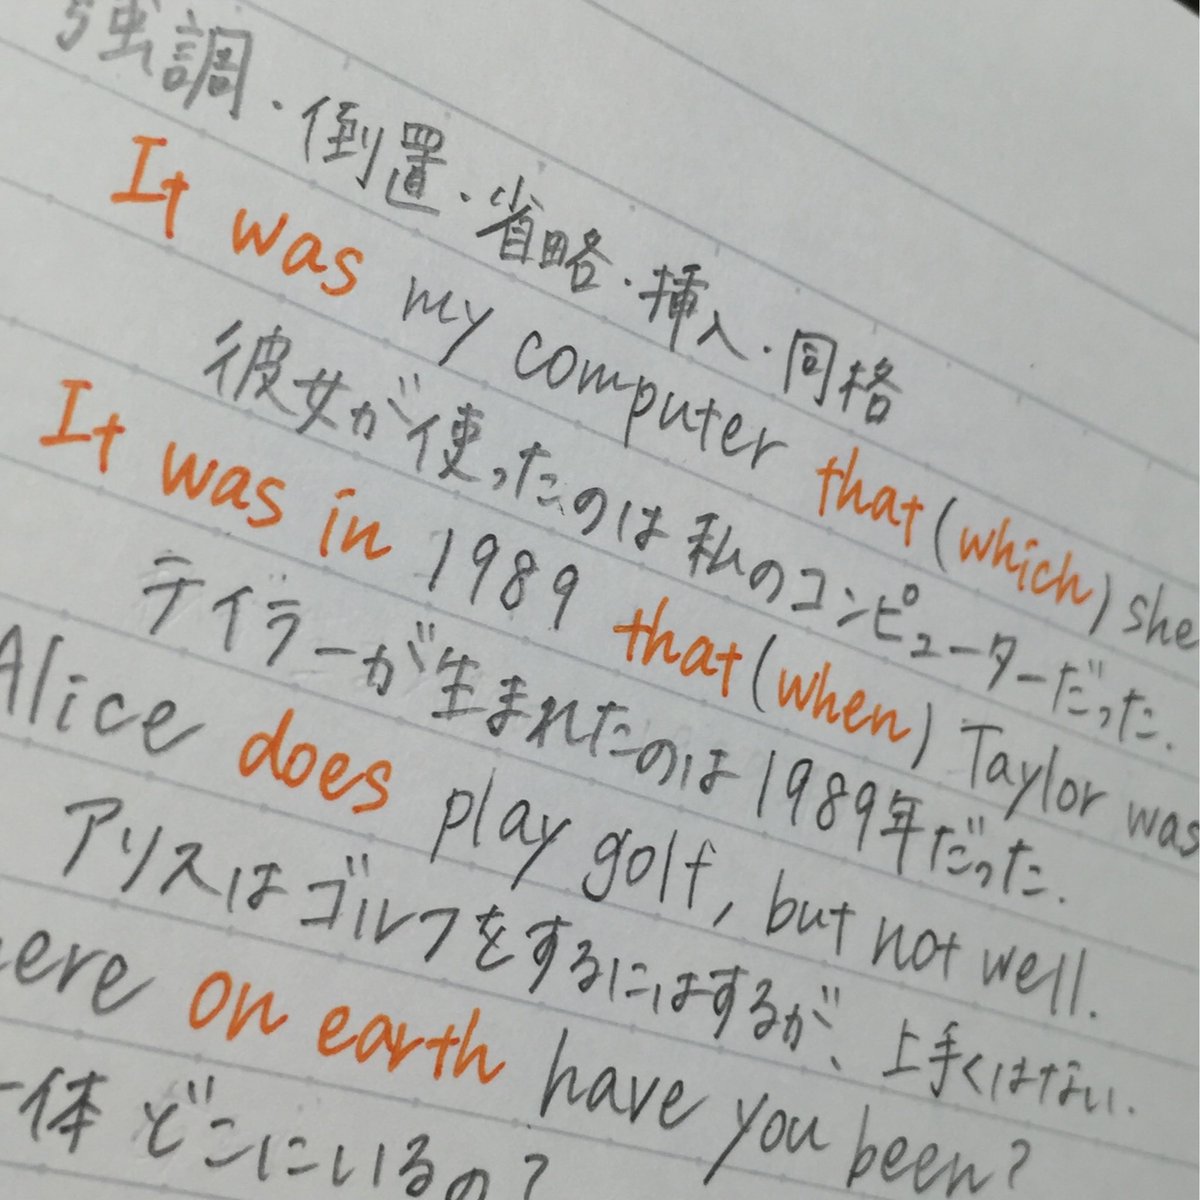 強調・倒置・省略・挿入・同格
It was my computer that (which) she
彼女が使ったのは私のコンピューターだった.
It was in 1989 that (when) Taylor was
テイラーが生まれたのは1989年だった.
Alice does play golf, but not well.
アリスはゴルフをするにはするが、上手くはない.
ere on earth have you been?
一体どこにいるの?